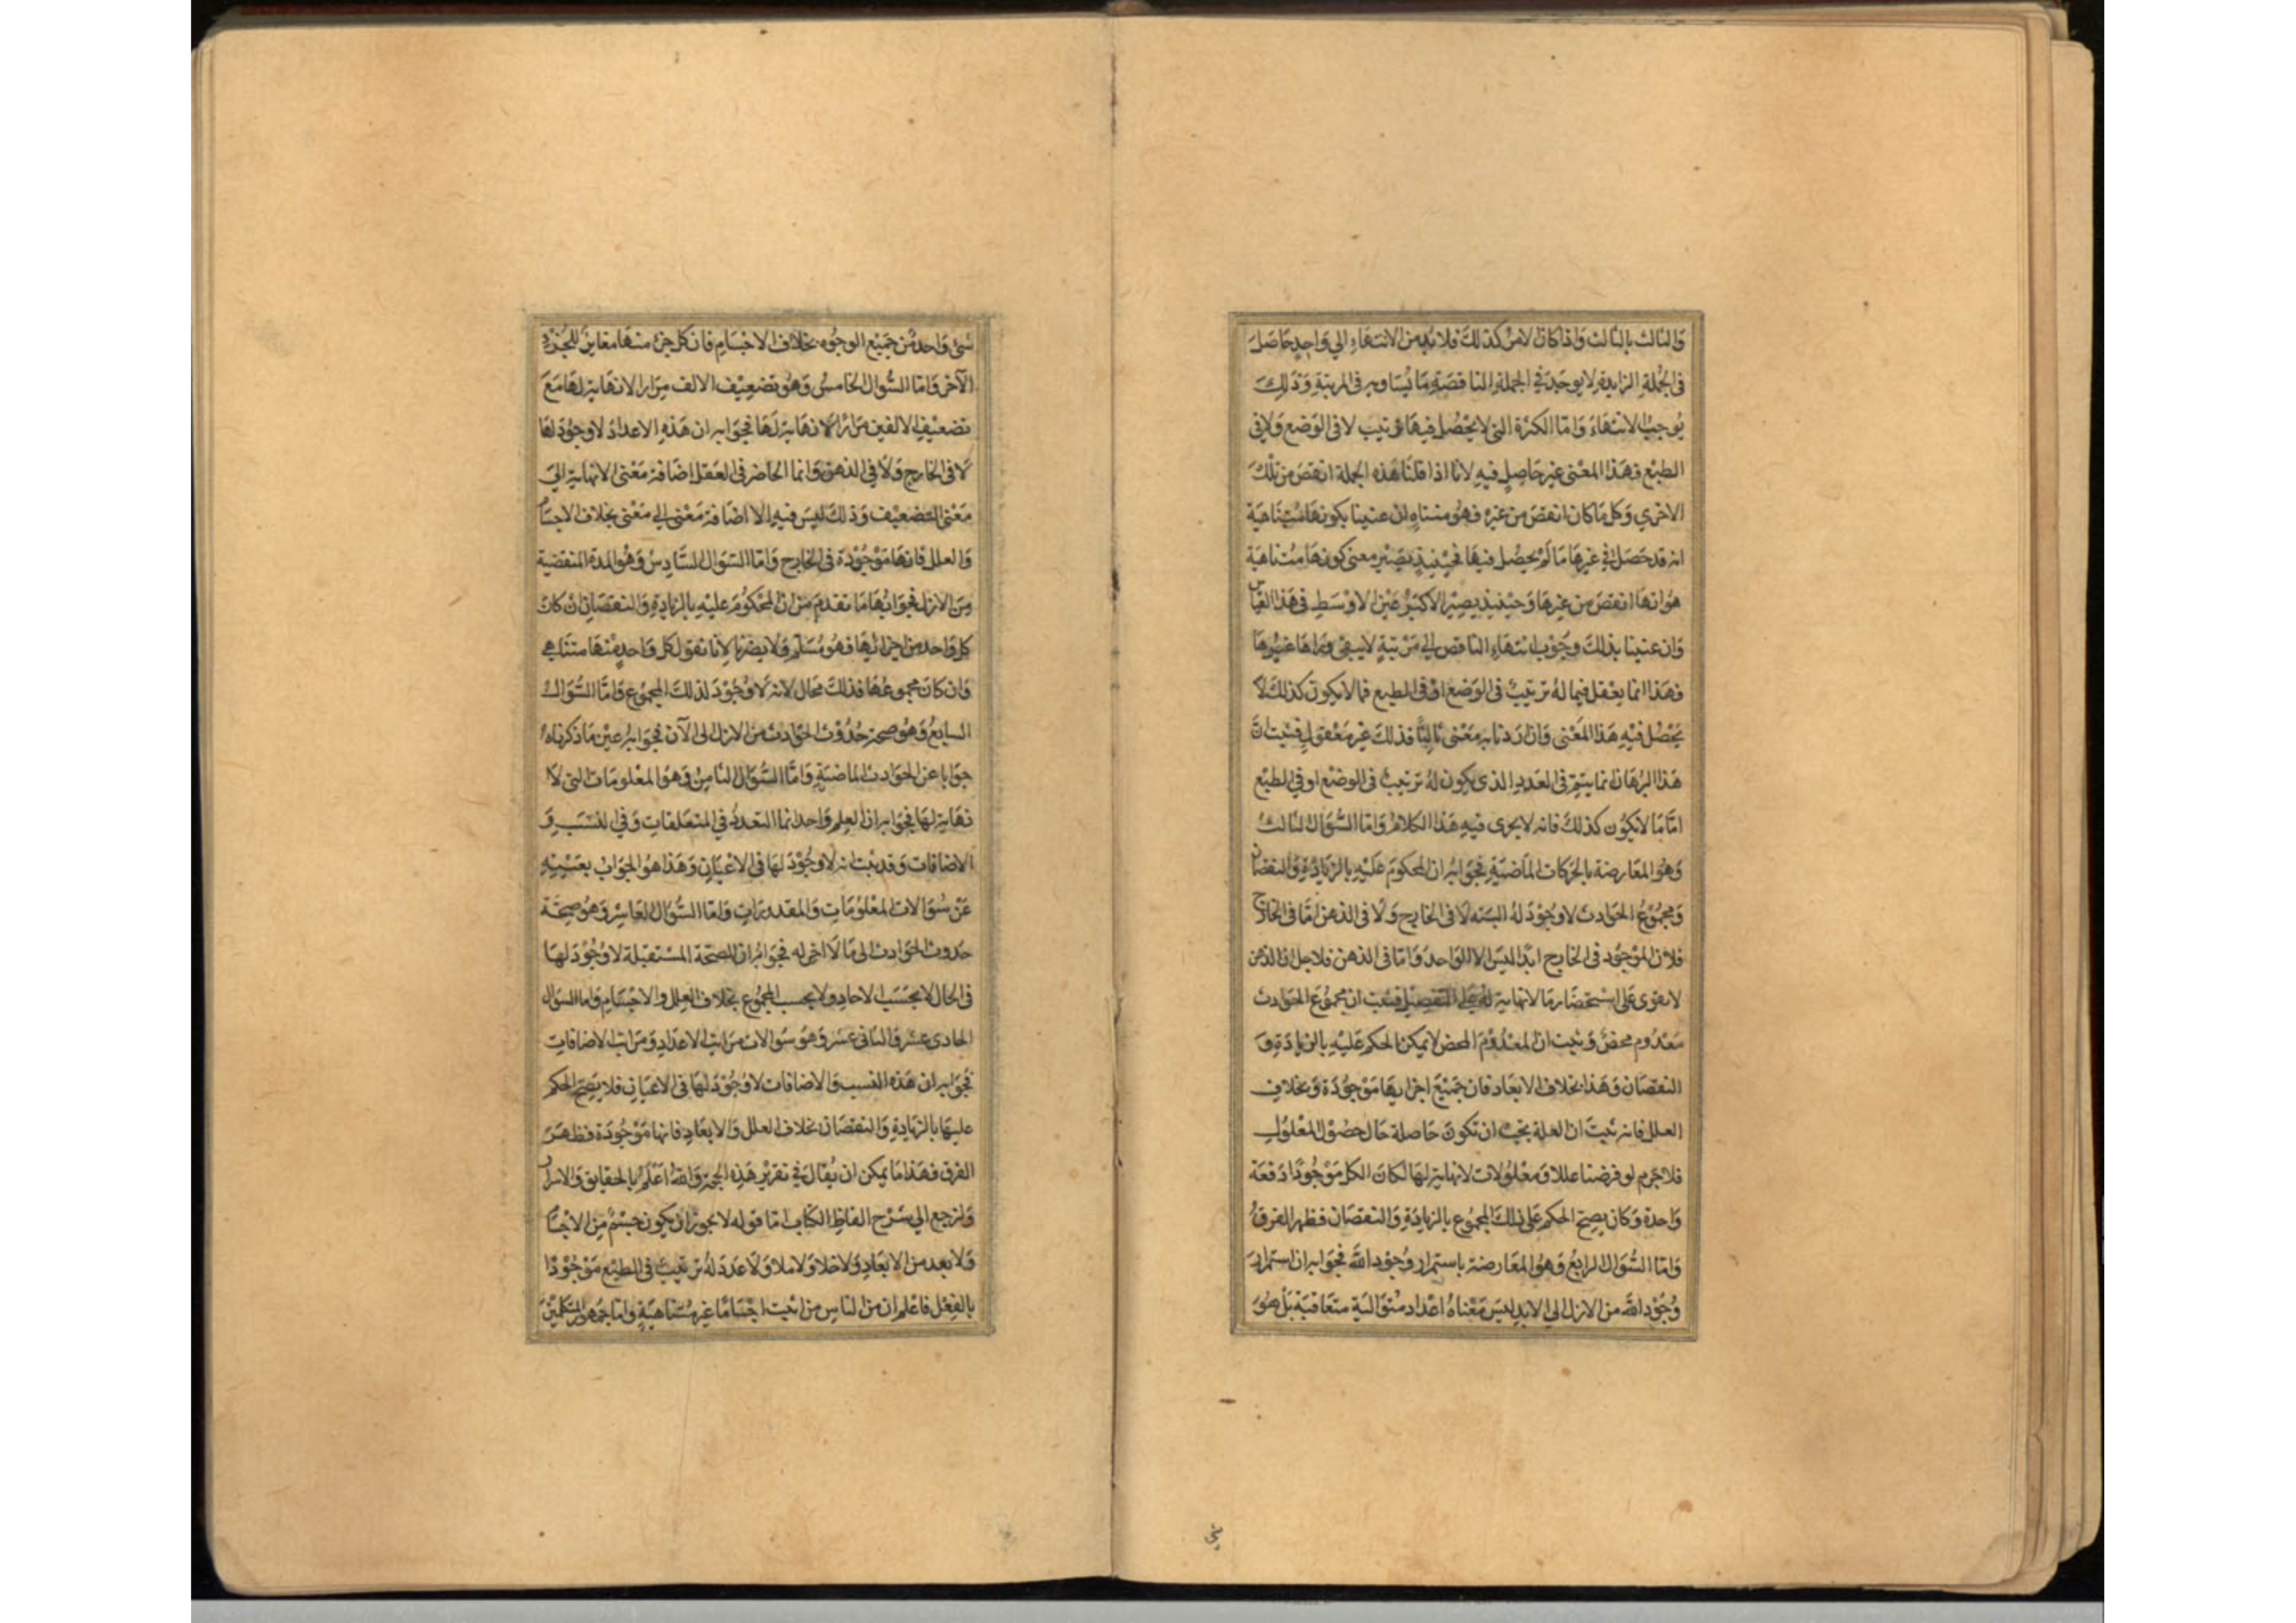 والثالث بالثالث واذا كان الامر كذلك فلا بد من الانتهاء الي واحد حاصل
في الجملة الزايدة لا يوجد في الجملة الناقصة ما يساويه في المرتبة وذلك
يوجب الانتهاء واما الكثرة التي لا يحصل فيها ترتيب لا في الوضع ولا في
الطبع فهذا المعنى غير حاصل فيه لانا اذا قلنا هذه الجملة انقص من تلك
الاخري وكل ما كان انقص من غيره فهو متناه ان عنينا بكونها متناهية
انه قد حصل في غيرها ما لم يحصل فيها فحينيذ يصير معنى كونها متناهية
هو انها انقص من غيرها وحينيذ يصير الاكبر عين الاوسط في هذا القياس
وان عنينا بذلك وجوب انتهاء الناقص الي مرتبة لا يبقى وراها غيرها
فهذا انما يعقل فيما له ترتيب في الوضع او في الطبع فما لا يكون كذلك لا
يحصل فيه هذا المعنى وان اردنا به معنى ثالثا فذلك غير معقول فثبت ان
هذا البرهان انما يتم في العدد الذي يكون له ترتيب في الوضع او في الطبع
اما ما لا يكون كذلك فانه لا يجرى فيه هذا الكلام واما السؤال الثالث
وهو المعارضة بالحركات الماضية فجوابه ان المحكوم عليه بالزيادة والنقصان
ومجموع الحوادث لا وجود له البته لا في الخارج ولا في الذهن اما في الخارج
فلان الموجود في الخارج ابدا ليس الا الواحد واما في الذهن فلاجل ان الذهن
لا يقوى على استحضار ما لا نهاية له على التفصيل فثبت ان مجموع الحوادث
معدوم محض وثبت ان المعدوم المحض لا يمكن الحكم عليه بالزيادة و
النقصان وهذا بخلاف الابعاد فان جميع اجزايها موجودة وبخلاف
العلل فانه ثبت ان العلة يجب ان تكون حاصلة حال حصول المعلول
فلا جرم لو فرضنا عللا ومعلولات لا نهاية لها لكان الكل موجودا دفعة
واحدة وكان يصح الحكم على ذلك المجموع بالزيادة والنقصان فظهر الفرق
واما السؤال الرابع وهو المعارضة باستمرار وجود الله فجوابه ان استمرار
وجود الله من الازل الي الابد ليس معناه اعداد متوالية متعاقبة بل هو
شئ واحد من جميع الوجوه بخلاف الاجسام فان كل جزء منها مغاير للجزء
الآخر واما السؤال الخامس وهو تضعيف الالف مرارا لا نهاية لها مع
تضعيف الالفين مرارا لا نهاية لها فجوابه ان هذه الاعداد لا وجود لها
لا في الخارج ولا في الذهن وانما الحاضر في العقل اضافة معنى لا نهاية الي
معنى التضعيف وذلك ليس فيه الا اضافة معنى الي معنى بخلاف الاجسام
والعلل فانها موجودة في الخارج واما السؤال السادس وهو المدة المنقضية
من الازل فجوابها ما تقدم من ان المحكوم عليه بالزيادة والنقصان ان كان
كل واحد من اجزائها فهو مسلم ولا يضرنا لانا نقول كل واحد منها متناهي
وان كان مجموعها فذلك محال لانه لا وجود لذلك المجموع واما السؤال
السابع وهو صحة حدوث الحوادث من الازل الى الآن فجوابه عين ما ذكرناه
جوابا عن الحوادث الماضية واما السؤال الثامن وهو المعلومات التي لا
نهاية لها فجوابه ان العلم واحد انما التعدد في المتعلقات وفي النسب و
الاضافات وقد ثبت انه لا وجود لها في الاعيان وهذا هو الجواب بعينه
عن سؤالات المعلومات والمقدورات واما السؤال العاشر وهو صحة
حدوث الحوادث الى ما لا اخر له فجوابه ان الصحة المستقبلة لا وجود لها
في الحال لا بحسب الاحاد ولا بحسب المجموع بخلاف العلل والاجسام واما السؤال
الحادى عشر والثانى عشر وهو سؤالات مراتب الاعداد ومراتب الاضافات
فجوابه ان هذه النسب والاضافات لا وجود لها في الاعيان فلا يصح الحكم
عليها بالزيادة والنقصان بخلاف العلل والابعاد فانها موجودة فظهر
الفرق فهذا ما يمكن ان يقال في تقرير هذه الحجة والله اعلم بالحقايق والاسرار
ولنرجع الي شرح الفاظ الكتاب اما قوله لا يجوز ان يكون جسم من الاجسام
ولا بعد من الابعاد ولا خلا ولا ملا ولا عدد له ترتيب في الطبع موجودا
بالفعل فاعلم ان من الناس من اثبت اجساما غير متناهية واما جمهور المتكلمين